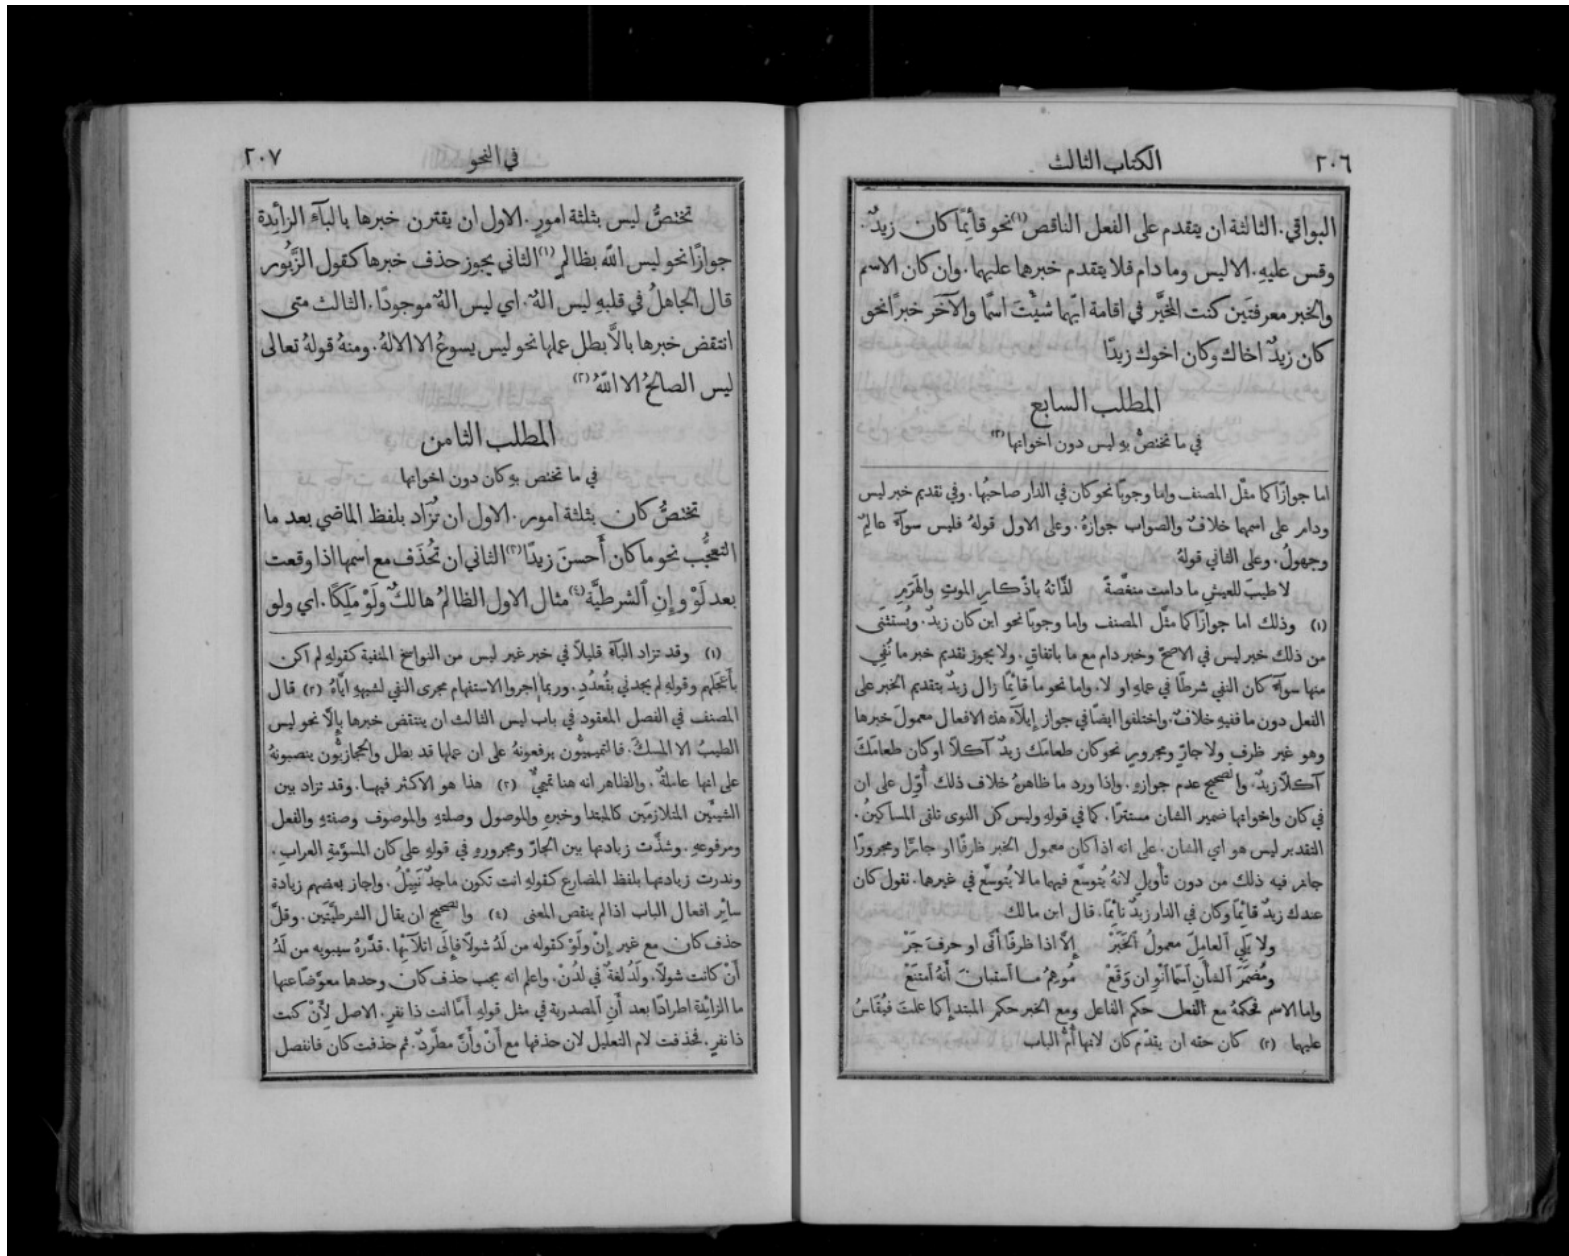 ٢٠٦
الكتاب الثالث
البواقي. الثالثة ان يتقدم على الفعل الناقص (١) نحو قآئمًا كان زيدٌ.
وقس عليهِ. الا ليس وما دام فلا يتقدم خبرهما عليهما. وان كان الاسم
والخبر معرفتَين كنت المخيَّر في اقامة ايّهما شئْتَ اسمًا والآخَر خبرًا نحو
كان زيدٌ اخاك وكان اخوك زيدًا
المطلب السابع
في ما تختصُّ بهِ ليس دون اخواتها (٢)
اما جوازًا كما مثّل المصنف واما وجوبًا نحو كان في الدار صاحبُها. وفي تقديم خبر ليس
ودام على اسمها خلافٌ والصواب جوازهُ. وعلى الاول قولهُ فليس سوآءً عالمٌ
وجهولُ. وعلى الثاني قولهُ
لا طيبَ للعيشِ ما دامت منغَّصةً لذَّاتهُ بادّكارِ الموتِ والهَرَمِ
(١) وذلك اما جوازًا كما مثّل المصنف واما وجوبًا نحو اين كان زيدٌ. ويُستثنَى
من ذلك خبر ليس في الاصحّ وخبر دام مع ما باتفاقٍ. ولا يجوز تقديم خبر ما نُفِي
منها سوآءٌ كان النفي شرطًا في عملهِ او لا. واما نحو ما قائِمًا زال زيدٌ بتقديم الخبر على
الفعل دون ما ففيهِ خلافٌ. واختلفوا ايضًا في جواز إيلآءِ هذه الافعال معمولَ خبرها
وهو غير ظرفٍ ولا جارٍّ ومجرورٍ نحو كان طعامَك زيدٌ آكلاً او كان طعامَكَ
آكلاً زيدٌ. والصحيح عدم جوازهِ. واذا ورد ما ظاهرهُ خلاف ذلك أُوِّل على ان
في كان واخواتها ضمير الشان مستترًا. كما في قولهِ وليس كل النوى تلقى المساكينُ.
التقدير ليس هو اي الشان. على انه اذا كان معمول الخبر ظرفًا او جارًّا ومجرورًا
جاز فيه ذلك من دون تأويل لانهُ يُتوسَّع فيهما ما لا يُتوسَّع في غيرها. تقول كان
عندك زيدٌ قائِمًا وكان في الدار زيدٌ نائِمًا. قال ابن مالك
ولا يَلِي ٱلعامِلَ معمولُ ٱلخَبَرْ إِلاَّ اذا ظرفًا أَتَى او حرفَ جَرْ
ومُضمَرَ ٱلشانِ ٱسمًا ٱنْوِ ان وَقَعْ مُوهِمُ ما ٱستبانَ أَنهُ ٱمتنَعْ
واما الاسم فحكمهُ مع الفعل حكم الفاعل ومع الخبر حكم المبتدإ كما علمت فيُقَاسُ
عليهما (٢) كان حقه ان يقدّم كان لانها أُمُّ الباب
في النحو
٢٠٧
تختصُّ ليس بثلثة امورٍ. الاول ان يقترن خبرها بالبآءِ الزائِدة
جوازًا نحو ليس الله بظالمٍ (١) الثاني يجوز حذف خبرها كقول الزَّبُور
قال الجاهلُ في قلبهِ ليس الهٌ. اي ليس الهٌ موجودًا. الثالث متى
انتقض خبرها بالاَّ بطل عملها نحو ليس يسوعُ الا الالهُ. ومنهُ قولهُ تعالى
ليس الصالحُ الا اللهُ (٢)
المطلب الثامن
في ما تختص بهِ كان دون اخواتها
تختصُّ كان بثلثة امورٍ. الاول ان تُزَاد بلفظ الماضي بعد ما
التعجُّب نحو ما كان أَحسنَ زيدًا (٣) الثاني ان تُحذَف مع اسمها اذا وقعت
بعد لَوْ وإِنِ ٱلشرطيَّة (٤) مثال الاول الظالمُ هالكٌ ولَوْ مَلِكًا. اي ولو
(١) وقد تزاد البآءُ قليلاً في خبر غير ليس من النواسخ المنفية كقولهِ لم اكن
بأَعجَلهم وقولهِ لم يجدني بقُعدُدِ. وربما اجروا الاستفهام مجرى النفي لشبههِ ايَّاهُ (٢) قال
المصنف في الفصل المعقود في باب ليس الثالث ان ينتقض خبرها بإِلاَّ نحو ليس
الطيبُ الا المسكَ. فالتميميُّون يرفعونهُ على ان عملها قد بطل والحجازيُّون ينصبونهُ
على انها عاملةٌ. والظاهر انه هنا تميميٌّ (٣) هذا هو الاكثر فيها. وقد تزاد بين
الشيئَين المتلازمَين كالمبتدا وخبرهِ والموصول وصلتهِ والموصوف وصفتهِ والفعل
ومرفوعهِ. وشذَّت زيادتها بين الجارّ ومجرورهِ في قولهِ على كان المسوَّمةِ العرابِ.
وندرت زيادتها بلفظ المضارع كقولهِ انت تكون ماجدٌ نَبِيْلُ. واجاز بعضهم زيادة
سائِر افعال الباب اذا لم ينقص المعنى (٤) والصحيح ان يقال الشرطيَّتَين. وقلَّ
حذف كان مع غير إِنْ ولَوْ كقوله من لَدُ شولاً فإِلَى اتلآئِها. قدَّرهُ سيبويه من لَدُ
أَنْ كانت شولاً. ولَدُ لغةٌ في لدُنْ. واعلم انه يجب حذف كان وحدها معوّضًا عنها
ما الزائِدة اطرادًا بعد أَنِ ٱلمصدرية في مثل قولهِ أَمَّا انت ذا نفرٍ. الاصل لِأَنْ كنت
ذا نفرٍ. فحذفت لام التعليل لان حذفها مع أَنْ وأَنَّ مطَّردٌ. ثم حذفت كان فانفصل